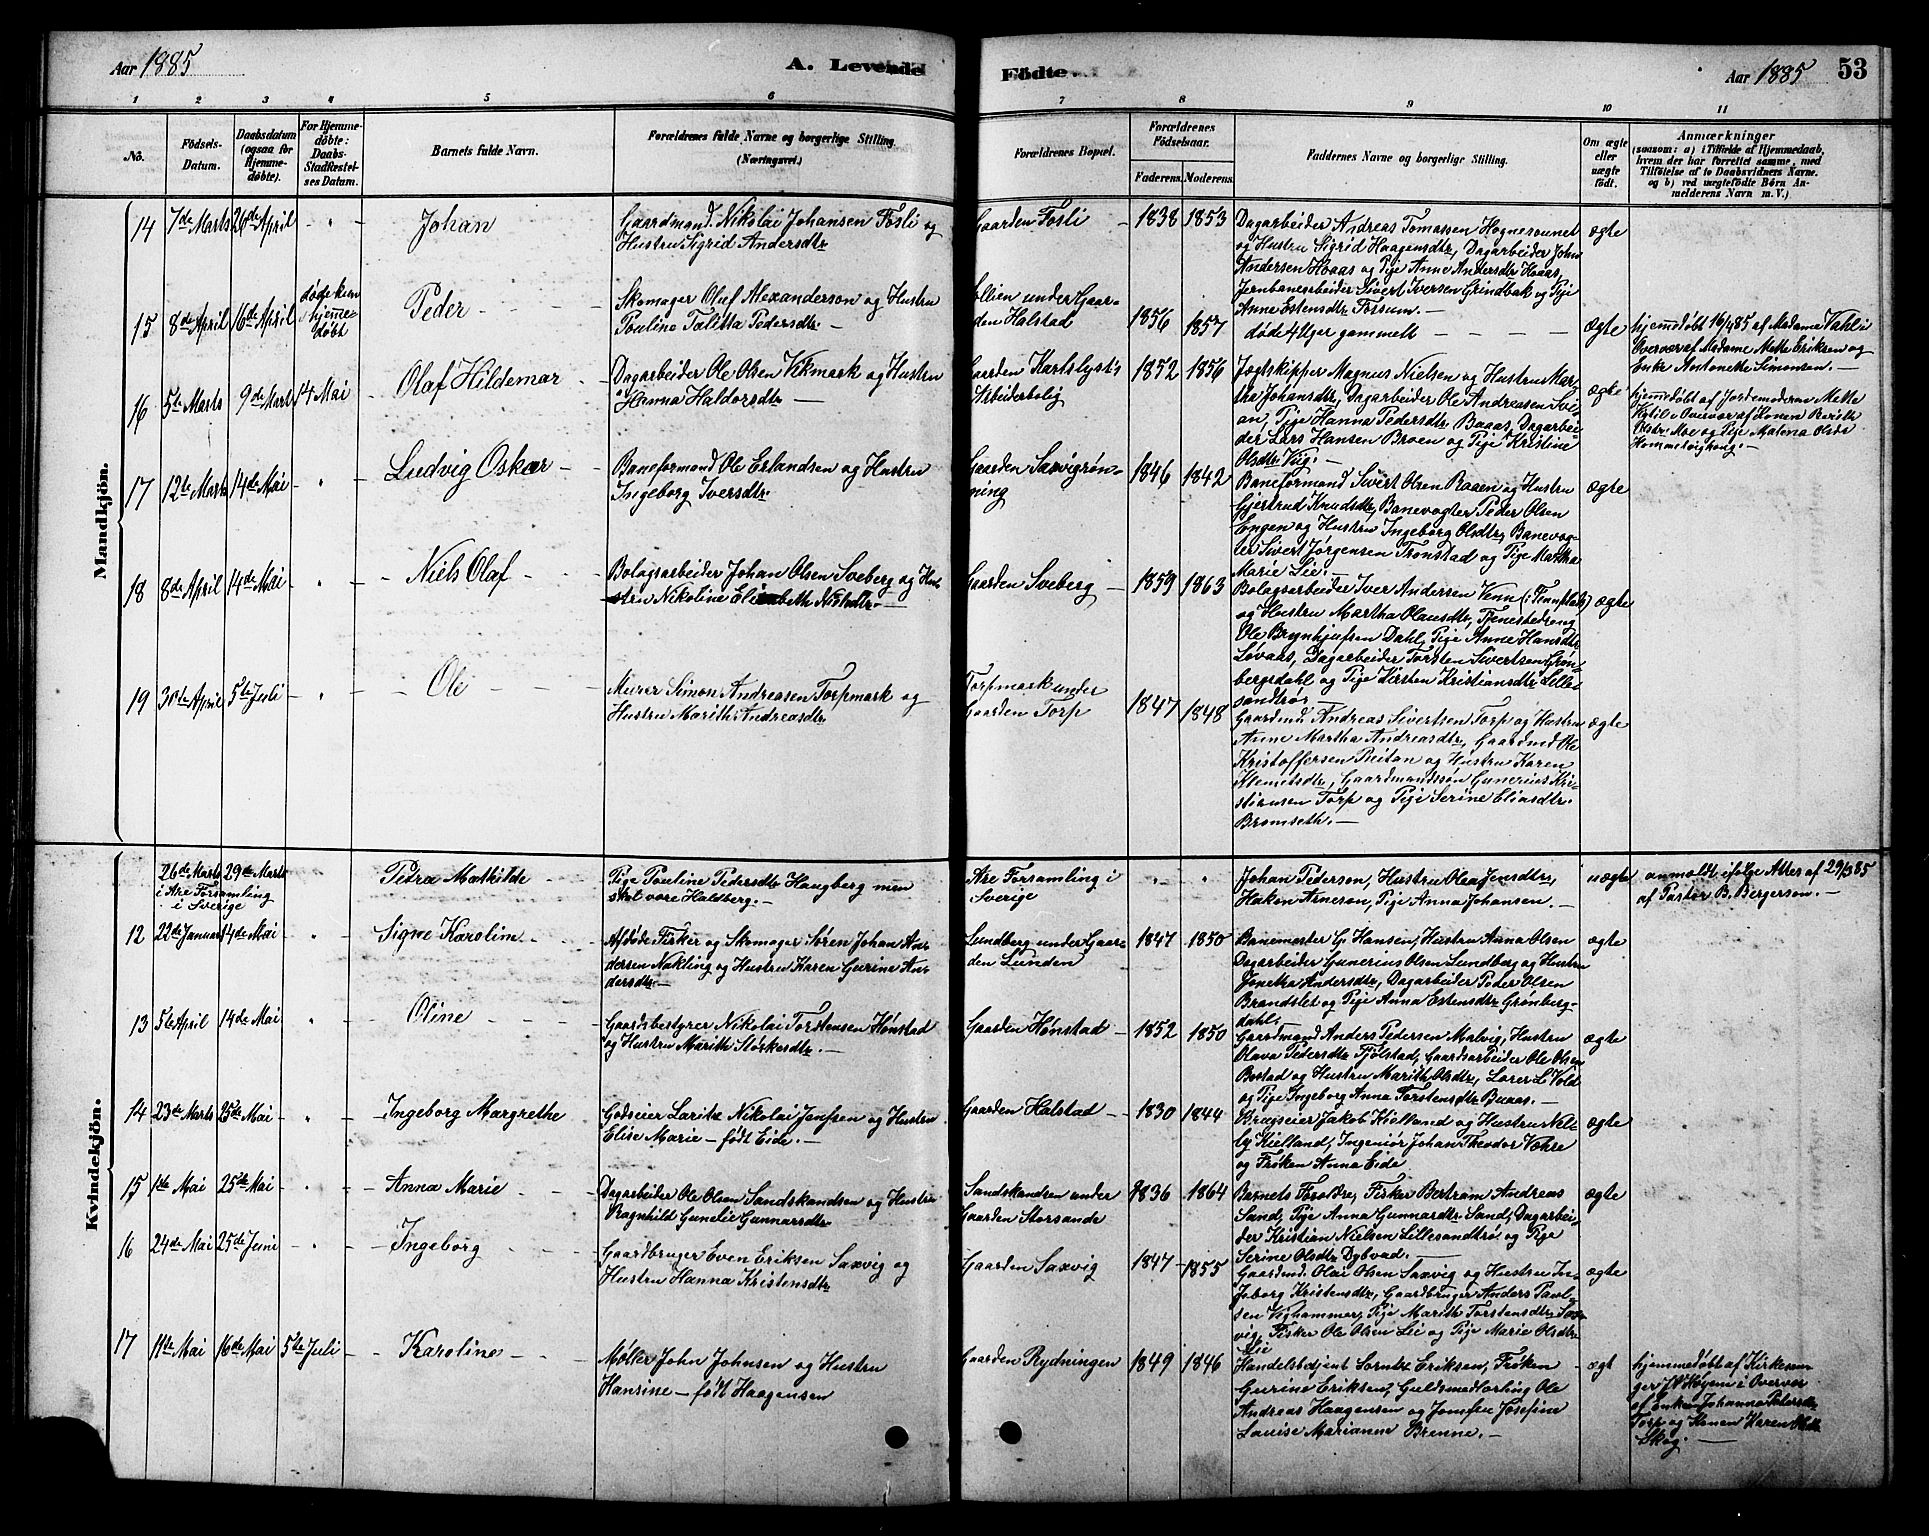 Aar 1885
A. Levende
Födte
Aar 1885
53
1 2 3 4 5 6 7 8 9 10 11
No.
Födsels-
Datum.
Daabsdatum
(ogsaa for
Hjemme-
döbte).
For Hjemme-
döbte:
Daabs-
Stadfæstel-
ses Datum.
Barnets fulde Navn.
Forældrenes fulde Navne og borgerlige Stilling.
(Næringsvei.)
Forældrenes Bopæl.
Forældrenes
Födselsaar.
Faderens. Moderens.
Faddernes Navne og borgerlige Stilling.
Om ægte
eller
uægte
födt.
Anmærkninger
(saasom: a) i Tilfælde af Hjemmedaab,
hvem der har forrettet samme, med
Tilföielse af to Daabsvidners Navne.
og b) ved uægtefödte Börn An-
melderens Navn m.V.)
Mandkjön.
14 7de Marts 26de April
Johan
Gaardmand Nikolai Johansen Fosli og
Hustru Sigrid Andersdtr
Gaarden Fosli
1838 1853
Dagarbeider Andreas Tomassen Hognesounet
og Hustru Sigrid Haagensdtr, Dagarbeider John
Andersen Hoaas og Pige Anne Andersdtr Hoaas,
Jernbanearbeider Sivert Iversen Grindbak og Pige
Anne Estensdtr Forsum.
ægte
15 8de April 16de April
døde kun
hjemme-
døbt
Peder
Skomager Oluf Alexanderson og Hustru
Pauline Talitta Pedersdtr
under Gaar-
den Halstad
1856 1857
døde 4 Uger gammelt
ægte
hjemmedøbt 16/4 85 af Madame Vahl i
Overvær af Madame Mette Eriksen og
Enke Antonette Simonsen.
16 5te Marts 9de Marts 14 Mai
Olaf Hildemar
Dagarbeider Ole Olsen Vikmark og Hustru
Hanna Haldorsdtr
Gaarden Karlslyst's
Arbeiderbolig
1852 1856
Jagtskipper Magnus Nielsen og Hustru Mar-
tha Johansdtr, Dagarbeider Ole Andreasen Svi-
an, Pige Hanna Pedersdtr Baaas, Dagarbei-
der Lars Hansen Broen og Pige Kristine
Olsdtr Viig.
ægte
hjemmedøbt af Jordemoderen Mette
i Overvær af Konen Berith
Olsdtr Moe og Pige Malena Olsdtr
17 12te Marts 14de Mai
Ludvig Oskar
Baneformand Ole Erlandsen og Hustru
Ingeborg Iversdtr
Gaarden Saxvigrøn-
ning
1846 1842
Baneformand Sivert Olsen Raaen og Hustru
Gjertrud Knudsdtr, Banevogter Peder Olsen
Engen og Hustru Ingeborg Olsdtr, Banevog-
ter Sivert Jørgensen Tronstad og Pige Martha
Marie Lie.
ægte
18 8de April 14de Mai
Niels Olaf
Bolagsarbeider Johan Olsen Sveberg og Hu-
stru Nikoline Elisabeth Nilsdtr
Gaarden Sveberg
1859 1863
Bolagsarbeider Iver Andersen Venn
og Hustru Martha Olausdtr, Tjenestedreng
Ole Brynhjulfsen Dahl, Pige Anne Hansdtr
Løvaas, Dagarbeider Torsten Sivertsen Grøn-
bergsdahl og Pige Kirsten Kristiansdtr Lille-
sandtrø.
ægte
19 30de April 5te Juli
Ole
Murer Simon Andreasen Torpmark og
Hustru Marith Andreasdtr
Torpmark under
Gaarden Torp
1847 1848
Gaardmd. Andreas Sivertsen Torp og Hustru
Anne Martha Andreasdtr, Gaardmd Ole
Kristoffersen Reitan og Hustru Karen
Klemetsdtr, Gaardmandssøn Gunerius Kri-
stiansen Torp og Pige Serine Eliasdtr.
Bromseth.
ægte
Kvindekjön.
26de Marts 29de Marts
i Are Forsamling
i Sverige
Petra Mathilde
Pige Pauline Pedersdtr Haugberg men
skal være Haldberg.
Are Forsamling i
Sverige
Johan Pederson, Hustru Olea Jensdtr,
Hakon Arneson, Pige Anna Johansen.
uægte
anmeldt ifølge Attest af 29/3 85
af Pastor B. Bergerson.
12 22de Januar 14de Mai
Signe Karoline
Afdøde Fisker og Skomager Søren Johan An-
dersen Nakling og Hustru Karen Gurine An-
dersdtr
Lundberg under Gaar-
den Lunden
1847 1850
Banemester G. Hansen, Hustru Anna Olsen
Dagarbeider Gunerius Olsen Lundberg og Hustru
Jonetha Andersdtr, Dagarbeider Peder Olsen
Brandslet og Pige Anna Estensdtr Grønberg-
dahl.
ægte
13 5te April 14de Mai
Oline
Gaardsbestyrer Nikolai Torstensen Hønstad
og Hustru Marith Størkersdtr.
Gaarden Hønstad
1852 1850
Gaardmand Anders Pedersen Malvig, Hustru
Olava Pedersdtr Fjølstad, Gaardsarbeider Ole Olsen
Bostad og Hustru Marith Olsdtr, Lærer L. Vold
og Pige Ingeborg Anna Torstensdtr Buaas.
ægte
14 23de Marts 25de Mai
Ingeborg Margrethe
Godseier Laritz Nikolai Jenssen og Hustru
Elise Marie – født Eide.
Gaarden Halstad
1830 1844
Brugseier Jakob Kielland og Hustru Nel-
ly Kielland, Ingeniør Johan Theodor Væhre
og Frøken Anna Eide
ægte
15 1ste Mai 25de Mai
Anna Marie
Dagarbeider Ole Olsen Sandskandsen og Hustru
Ragnhild Gunelie Gunnarsdtr
Sandskandsen under
Gaarden Storsande
1836 1864
Barnets Forældre, Fisker Bertram Andreas
Sand, Pige Anna Gunnardtr Sand, Dagarbei-
der Kristian Nielsen Lillesandtrø og Pige
Serine Olsdtr Dybvad.
ægte
16 24de Mai 25de Juni
Ingeborg
Gaardbruger Even Eriksen Saxvig og
Hustru Hanna Kristensdtr
Gaarden Saxvig
1847 1855
Gaardmd. Olai Olsen Saxvig og Hustru In-
geborg Kristensdtr, Gaardbruger Anders Paul-
sen Vighammer, Pige Marith Torstensdtr Sax-
vig, Fisker Ole Olsen Lie og Pige Marie Olsdtr
Lie
ægte
17 11te Mai 16de Mai 5te Juli
Karoline
Møller John Johnsen og Hustru
Hansine – født Haagensen
Gaarden Rydningen
1849 1846
Handelsbetjent Eriksen, Frøken
Gurine Eriksen, Guldsmedlærling Ole
Andreas Haagensen og Jomfru Josefine
Louise Marianne Brenne.
ægt
hjemmedøbt af Kirkesan-
ger Høyem i Overvær
af Enken Johanna Petersdtr
Torp og Konen Karen
Skog.